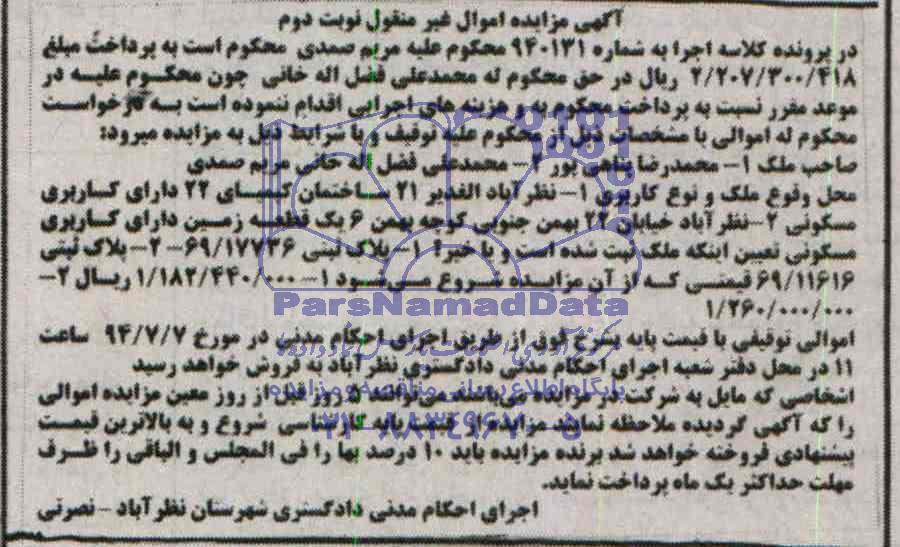 آگهی مزایده اموال غیر منقول نوبت دوم
در پرونده کلاسه اجرا به شماره ۹۴۰۱۳۱ محکوم علیه مریم صمدی محکوم است به پرداخت مبلغ
۲/۲۰۷/۳۰۰/۴۱۸ ریال در حق محکوم له محمدعلی فضل اله خانی چون محکوم علیه در
موعد مقرر نسبت به پرداخت محکوم به و هزینه های اجرایی اقدام ننموده است به درخواست
محکوم له اموالی با مشخصات ذیل از محکوم علیه توقیف و با شرایط ذیل به مزایده میرود:
صاحب ملک ۱- محمدرضا پناهی پور ۲- محمدعلی فضل اله خانی مریم صمدی
محل وقوع ملک و نوع کاربری ۱- نظر آباد الغدیر ۲۱ ساختمان کیمیای ۲۲ دارای کاربری
مسکونی ۲-نظر آباد خیابان ۲۲ بهمن جنوبی کوچه بهمن ۶ یک قطعه زمین دارای کاربری
مسکونی تعیین اینکه ملک ثبت شده است و یا خیر؟ ۱- پلاک ثبتی ۶۹/۱۷۷۳۶ -۲- پلاک ثبتی
۶۹/۱۱۶۱۶ قیمتی که از آن مزایده شروع می شود ۱- ۱/۱۸۲/۴۴۰/۰۰۰ ریال ۲-
۱/۲۶۰/۰۰۰/۰۰۰
اموالی توقیفی با قیمت پایه بشرح فوق از طریق اجرای احکام مدنی در مورخ ۹۴/۷/۷ ساعت
۱۱ در محل دفتر شعبه اجرای احکام مدنی دادگستری نظر آباد به فروش خواهد رسید
اشخاصی که مایل به شرکت در مزایده می باشند می توانند ۵ روز قبل از روز معین مزایده اموالی
را که آگهی گردیده ملاحظه نمایند مزایده از قیمت پایه کارشناسی شروع و به بالاترین قیمت
پیشنهادی فروخته خواهد شد برنده مزایده باید ۱۰ درصد بها را فی المجلس و الباقی را ظرف
مهلت حداکثر یک ماه پرداخت نماید.
اجرای احکام مدنی دادگستری شهرستان نظر آباد - نصرتی
ParsNamadData
پایگاه اطلاع رسانی مناقصه و مزایده
۰۲۱-۸۸۳۴۹۶۷۰-۵